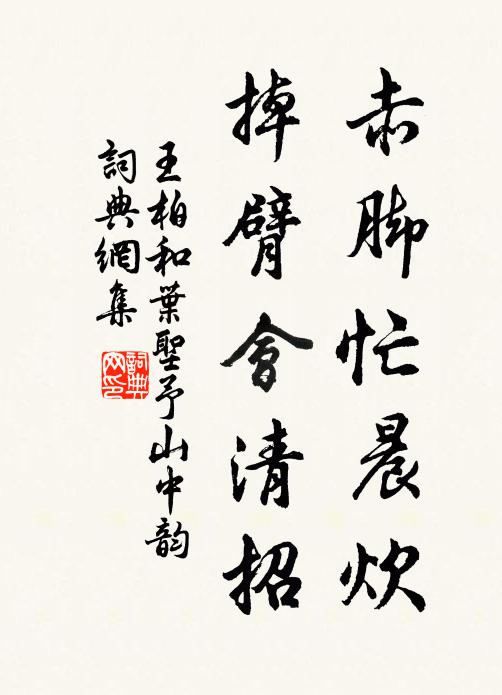 赤脚忙晨炊
掉臂會清招
王柏和葉聖予山中韵
詞典網集
詞典网印